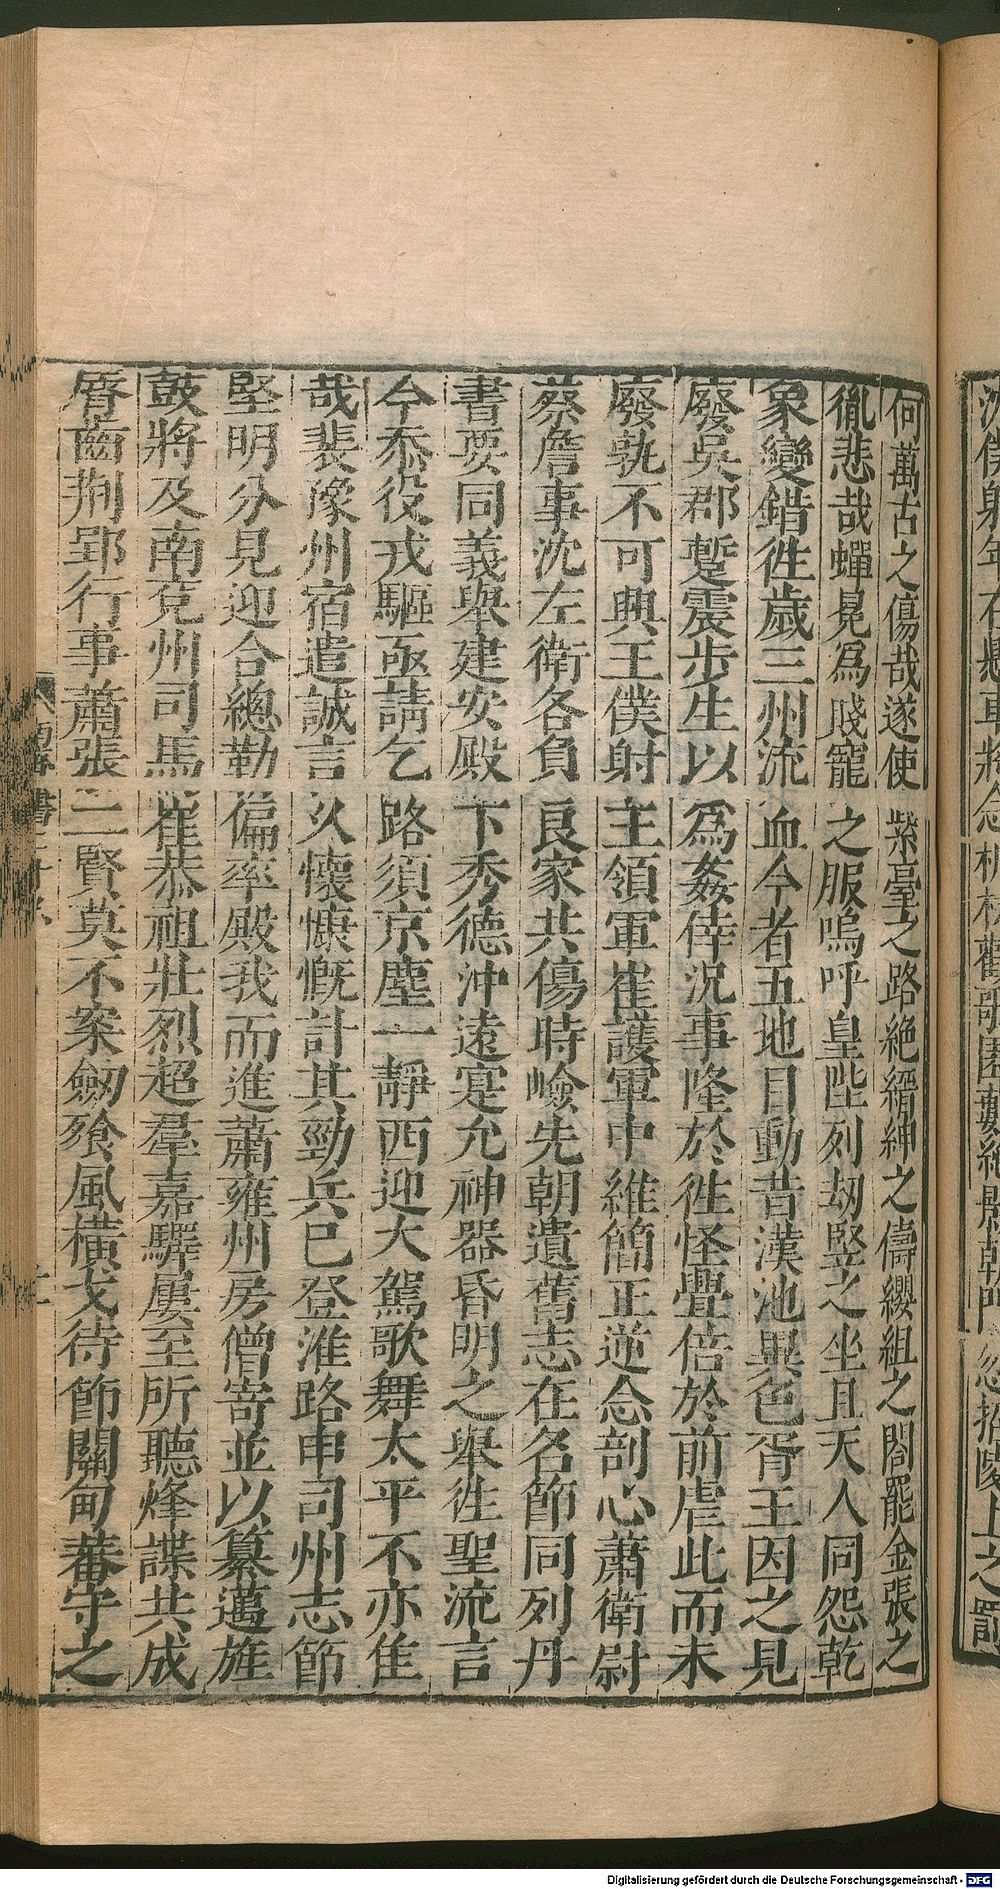 何萬古之傷哉遂使紫臺之路絶縉紳之儔纓組之閤罷金張之
胤悲哉蟬冕爲賤寵之服嗚呼皇陛列刼竪之坐且天人同怨乾
象變錯徃歲三州流血今者五地自動昔漢池異色胥王因之見
廢吳郡蹔震步生以爲姦倖況事隆於徃怪舋倍於前虐此而未
廢孰不可興王僕射主領軍崔護軍中維簡正逆念剖心蕭衛尉
蔡詹事沈左衛各負良家共傷時嶮先朝遺舊志在名節同列丹
書要同義舉建安殿下秀德沖遠寔允神器昏明之舉徃聖流言
今忝役戎驅亟請乞路須京塵一靜西迎大駕歌舞太平不亦隹
哉裴豫州宿遣誠言乆懷慷慨計其勁兵已登淮路申司州志節
堅明分見迎合總勒偏率殿我而進蕭雍州房僧寄並以纂邁旌
鼓將及南兗州司馬崔恭祖壯烈超羣嘉驛屢至所聽烽諜共成
脣齒荆郢行事蕭張二賢莫不案劒飡風橫戈待節關甸蕃守之
Digitalisierung gefördert durch die Deutsche Forschungsgemeinschaft - DFG